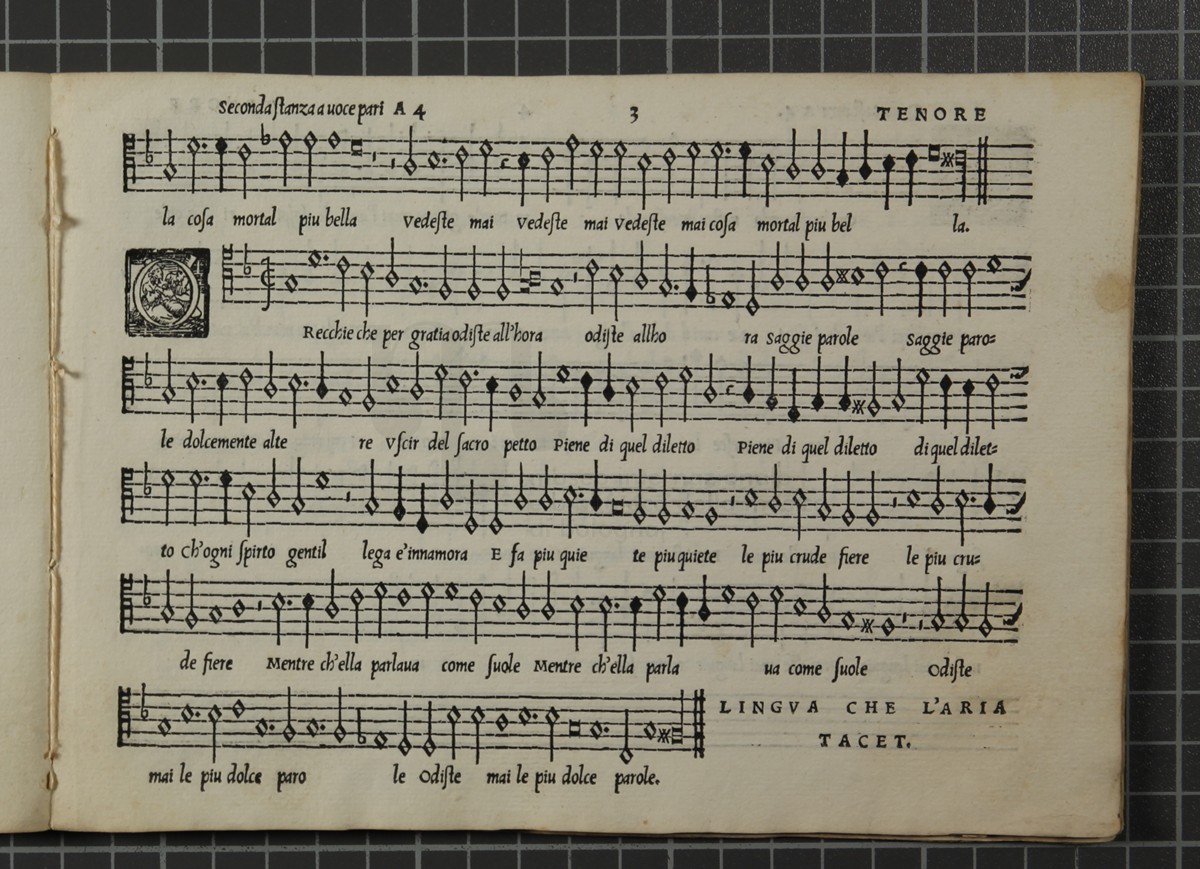 Seconda ſtanza a uoce pari A 4 3 TENORE
la coſa mortal piu bella vedeſte mai vedeſte mai vedeſte mai coſa mortal piu bel la.
O Recchie che per gratia odiſte all'hora odiſte allho ra saggie parole saggie paro=
le dolcemente alte re vſcir del ſacro petto Piene di quel diletto Piene di quel diletto di quel dilet=
to Ch'ogni ſpirto gentil lega e'innamora E fa piu quie te piu quiete le piu crude fiere le piu cru=
de fiere Mentre ch'ella parlaua come ſuole Mentre ch'ella parla ua come ſuole Odiſte
LINGVA CHE L'ARIA
TACET.
mai le piu dolce paro le Odiſte mai le piu dolce parole.